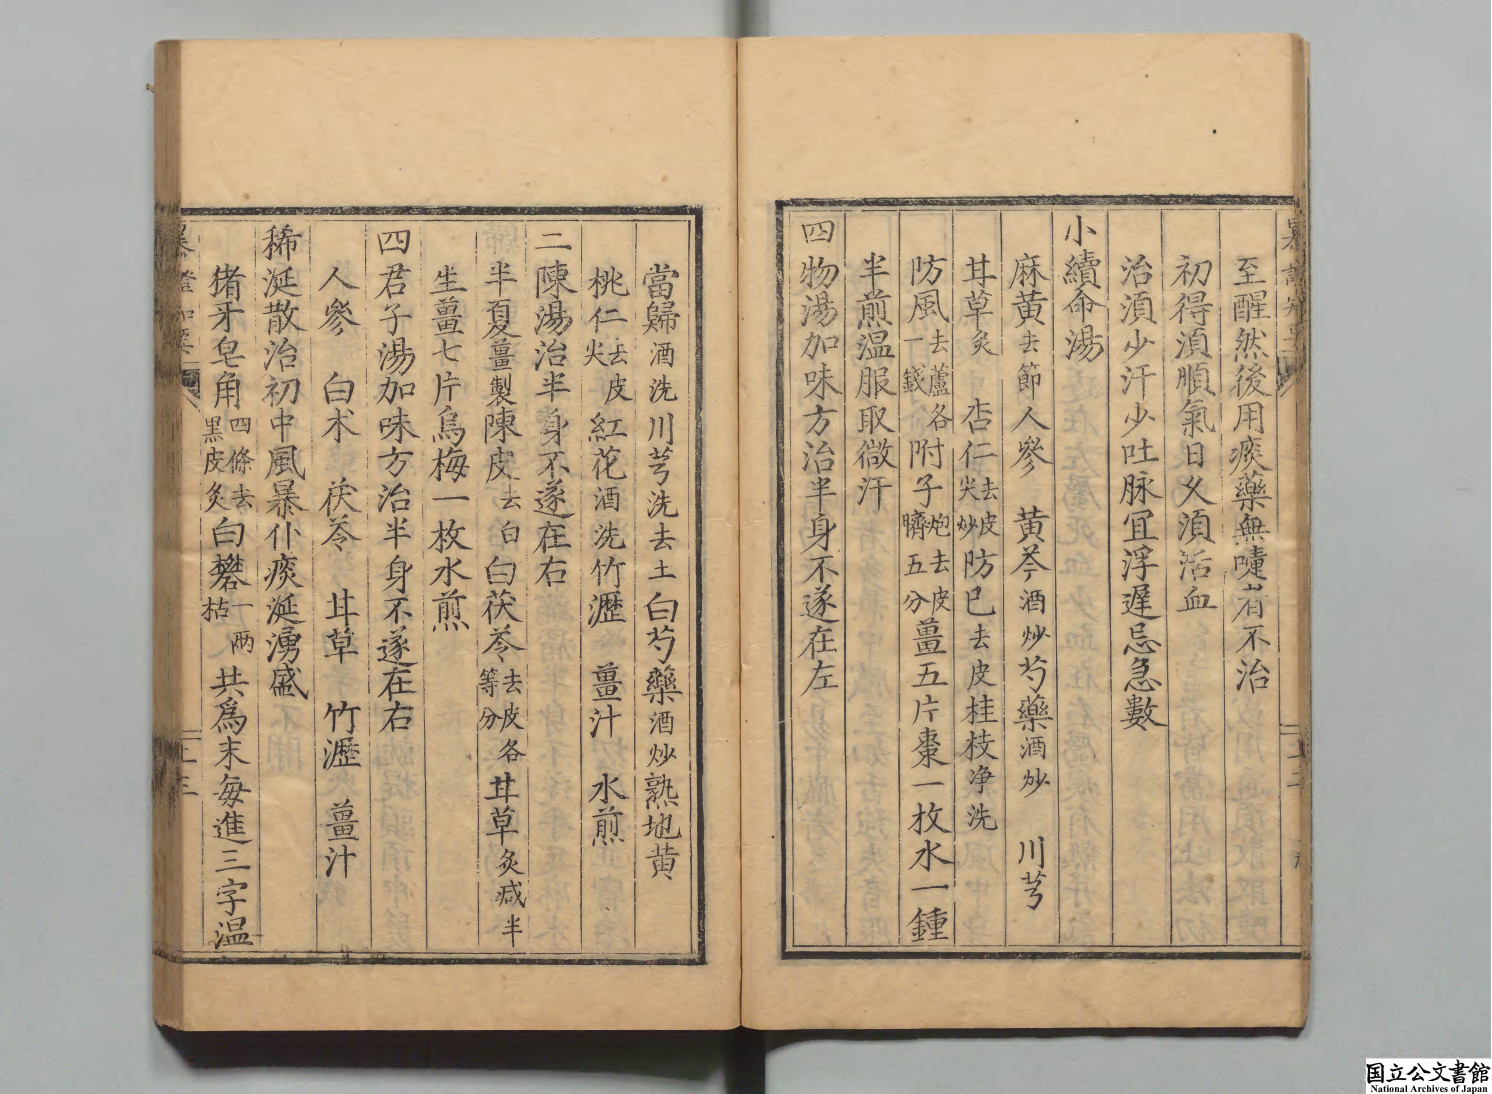 至醒然後用痰藥無嚏者不治
初得湏順氣日乆湏活血
治湏少汗少吐脉冝浮遲忌急數
小續命湯
麻黄去節人參 黄芩酒炒芍藥酒炒 川芎
甘草炙 杏仁去皮尖炒防巳去皮桂枝净洗
防風去蘆各一錢附子炮去皮臍五分薑五片棗一枚水一鍾
半煎温服取微汗
四物湯加味方治半身不遂在左
當歸酒洗川芎洗去土白芍藥酒炒熟地黄
桃仁去皮尖紅花酒洗竹瀝 薑汁 水煎
二陳湯治半身不遂在右
半夏薑製陳皮去白白茯苓去皮各等分甘草炙减半
生薑七片烏梅一枚水煎
四君子湯加味方治半身不遂在右
人參 白术 茯苓 甘草 竹瀝 薑汁
稀涎散治初中風暴仆痰涎湧盛
猪牙皂角四條去黑皮炙白礬一兩枯共爲末每進三字温
国立公文書館
National Archives of Japan